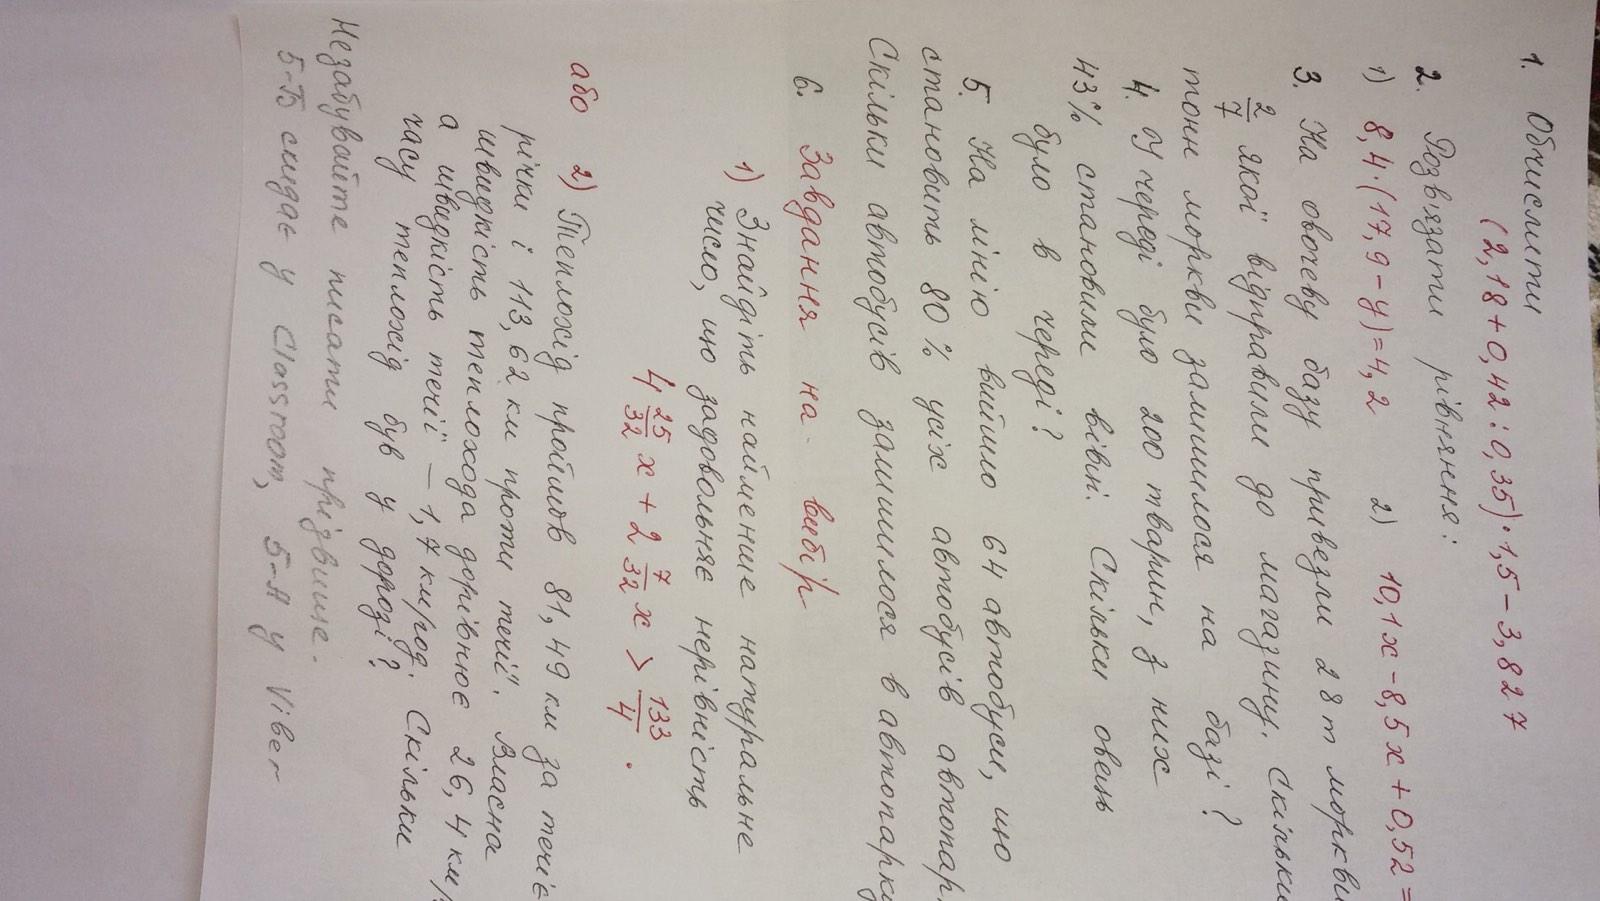 1. Обчислити
(2,18 + 0,42 : 0,35) · 1,5 − 3,827
2. Розв'язати рівняння:
1) 8,4 · (17,9 − y) = 4,2 2) 10,1x − 8,5x + 0,52 =
3. На овочеву базу привезли 28 т моркви
2/7 якої відправили до магазину. Скільки
тонн моркви залишилося на базі?
4. У череді було 200 тварин, з них
43% становили вівці. Скільки овець
було в череді?
5. На лінію вийшло 64 автобуси, що
становить 80% усіх автобусів автопар
Скільки автобусів залишилося в автопарку
6. Завдання на вибір
1) Знайдіть найменше натуральне
число, що задовольняє нерівність
4 25/32 x + 2 7/32 x > 133/4 .
або 2) Теплохід пройшов 81,49 км за течіє
річки і 113,62 км проти течії. Власна
швидкість теплохода дорівнює 26,4 км/
а швидкість течії — 1,7 км/год. Скільки
часу теплохід був у дорозі?
Незабувайте писати прізвище.
5-Б скидає у Classroom, 5-А у Viber